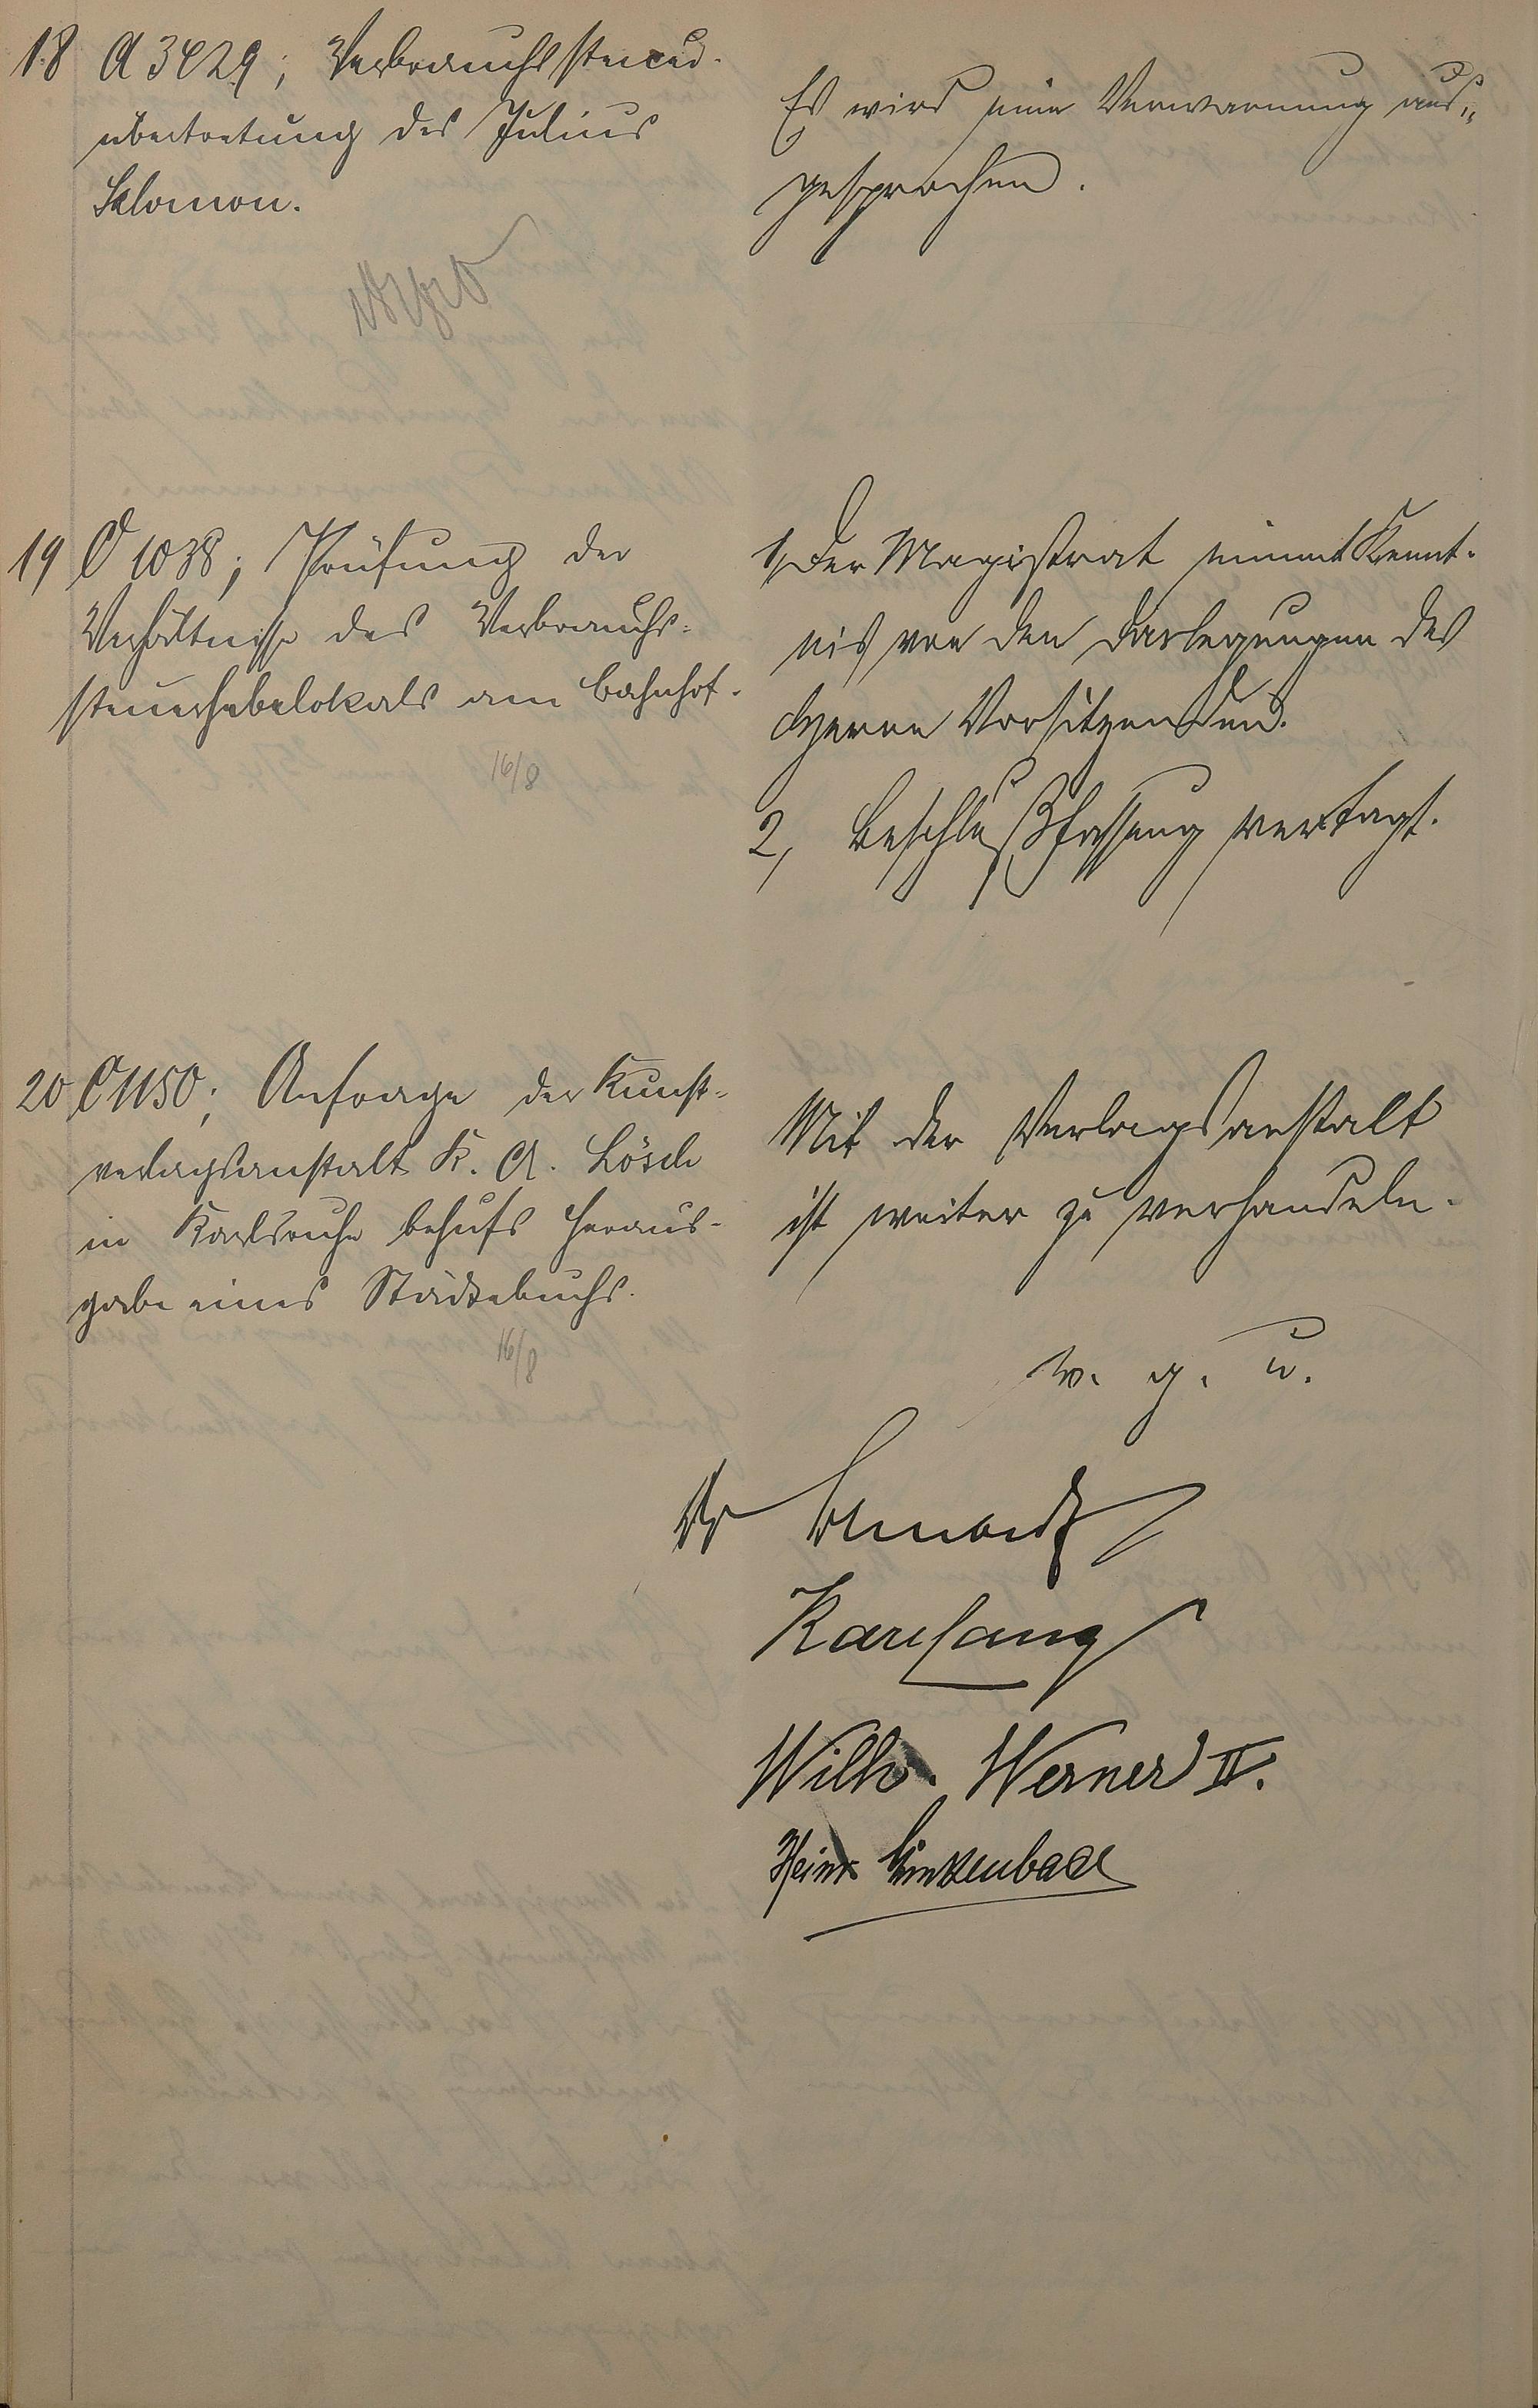 18 A 3429; Verbrauchssteuer-
übertretung des Julius
Salomon.
Es wird eine Verwarnung aus-
gesprochen.
19 C 1038; Prüfung der
Verhältnisse des Verbrauchs-
steuerhebelokals am Bahnhof.
16/8
1, Der Magistrat nimmt Kennt-
nis von den Darlegungen des
Herrn Vorsitzenden.
2, Beschlußfassung vertagt.
20 C 1150; Anfrage der Kunst-
verlagsanstalt K. A. Lösch
in Karlsruhe behufs Heraus-
gabe eines Städtebuchs.
16/8
Mit der Verlagsanstalt
ist weiter zu verhandeln.
w. g. u.
Dr
Karl Lang
Wilh. Werner II.
Heinr.